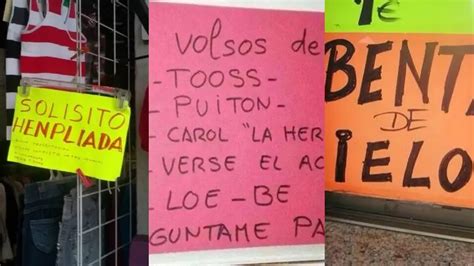 SOLISITO
HENPLIADA
VOLSOS de
-TOOSS-
-PUITON-
-CAROL "LA HER
-VERSE EL AC
-LOE-BE
GUNTAME PA
1€
BENTA
DE
IELO